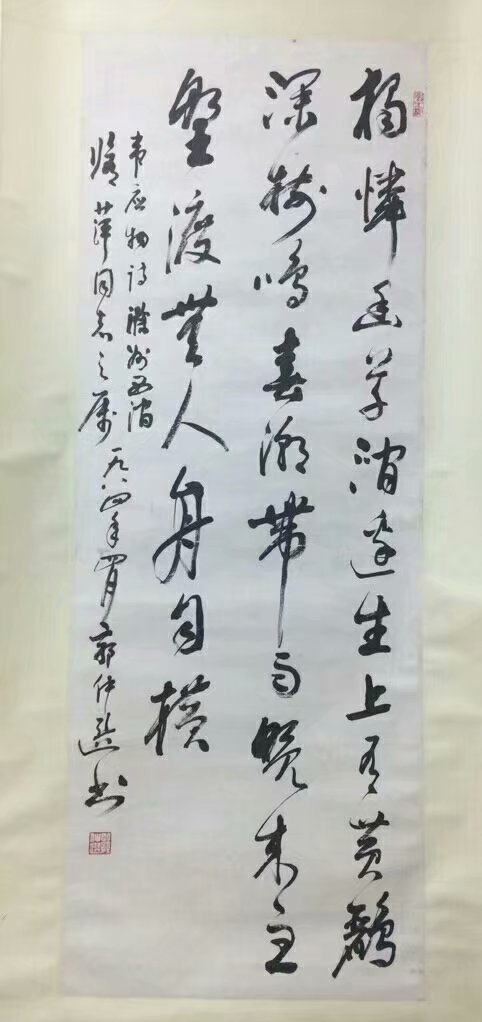 獨憐幽草澗邊生上有黃鸝
深樹鳴春潮帶雨晚來急
野渡無人舟自橫
韦应物诗滁州西涧
萍同志之属 一九八四年四月 郭仲选书